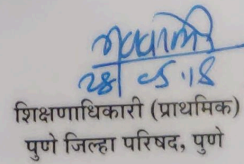 28/05/18
शिक्षणाधिकारी (प्राथमिक)
पुणे जिल्हा परिषद, पुणे